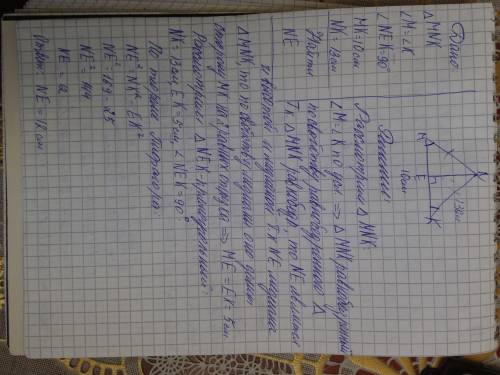 Дано:
△MNK
∠M = ∠K
∠NEK = 90°
MK = 10 см
NK = 13 см
Найти
NE
N
13 см
M
E
K
10 см
Решение:
Рассмотрим △MNK:
∠M = ∠K по усл ⇒ △MNK равнобедренный
по свойству равнобедренного △
Т.к △MNK равнобед, то NE является
и высотой и медианой. Т.к NE медиана
△MNK, то по свойству медианы она делит
сторону MK на равные отрезка ⇒ ME = EK = 5 см
Рассмотрим △NEK - прямоугольный:
NK = 13 см, EK = 5 см, ∠NEK = 90°
По теореме Пифагора:
NE² = NK² - EK²
NE² = 169 - 25
NE² = 144
NE = 12
Ответ: NE = 12 см